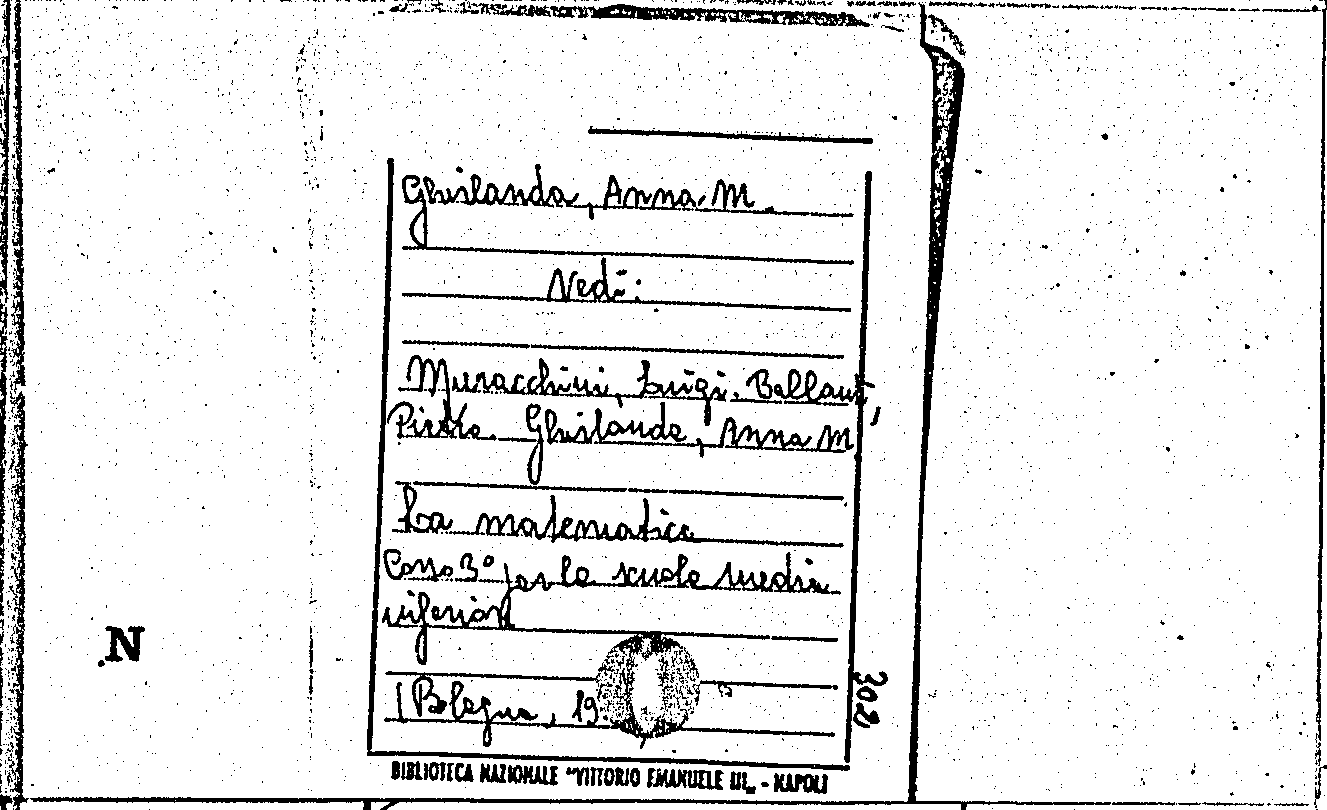 Ghislanda, Anna M.
Vedi:
Muracchini, Luigi. Ballanti,
Pietro. Ghislanda, Anna M
La matematica
Corso 3º per la scuola media
inferiore
(Bologna, 19
302
N
BIBLIOTECA NAZIONALE "VITTORIO EMANUELE III„ - NAPOLI